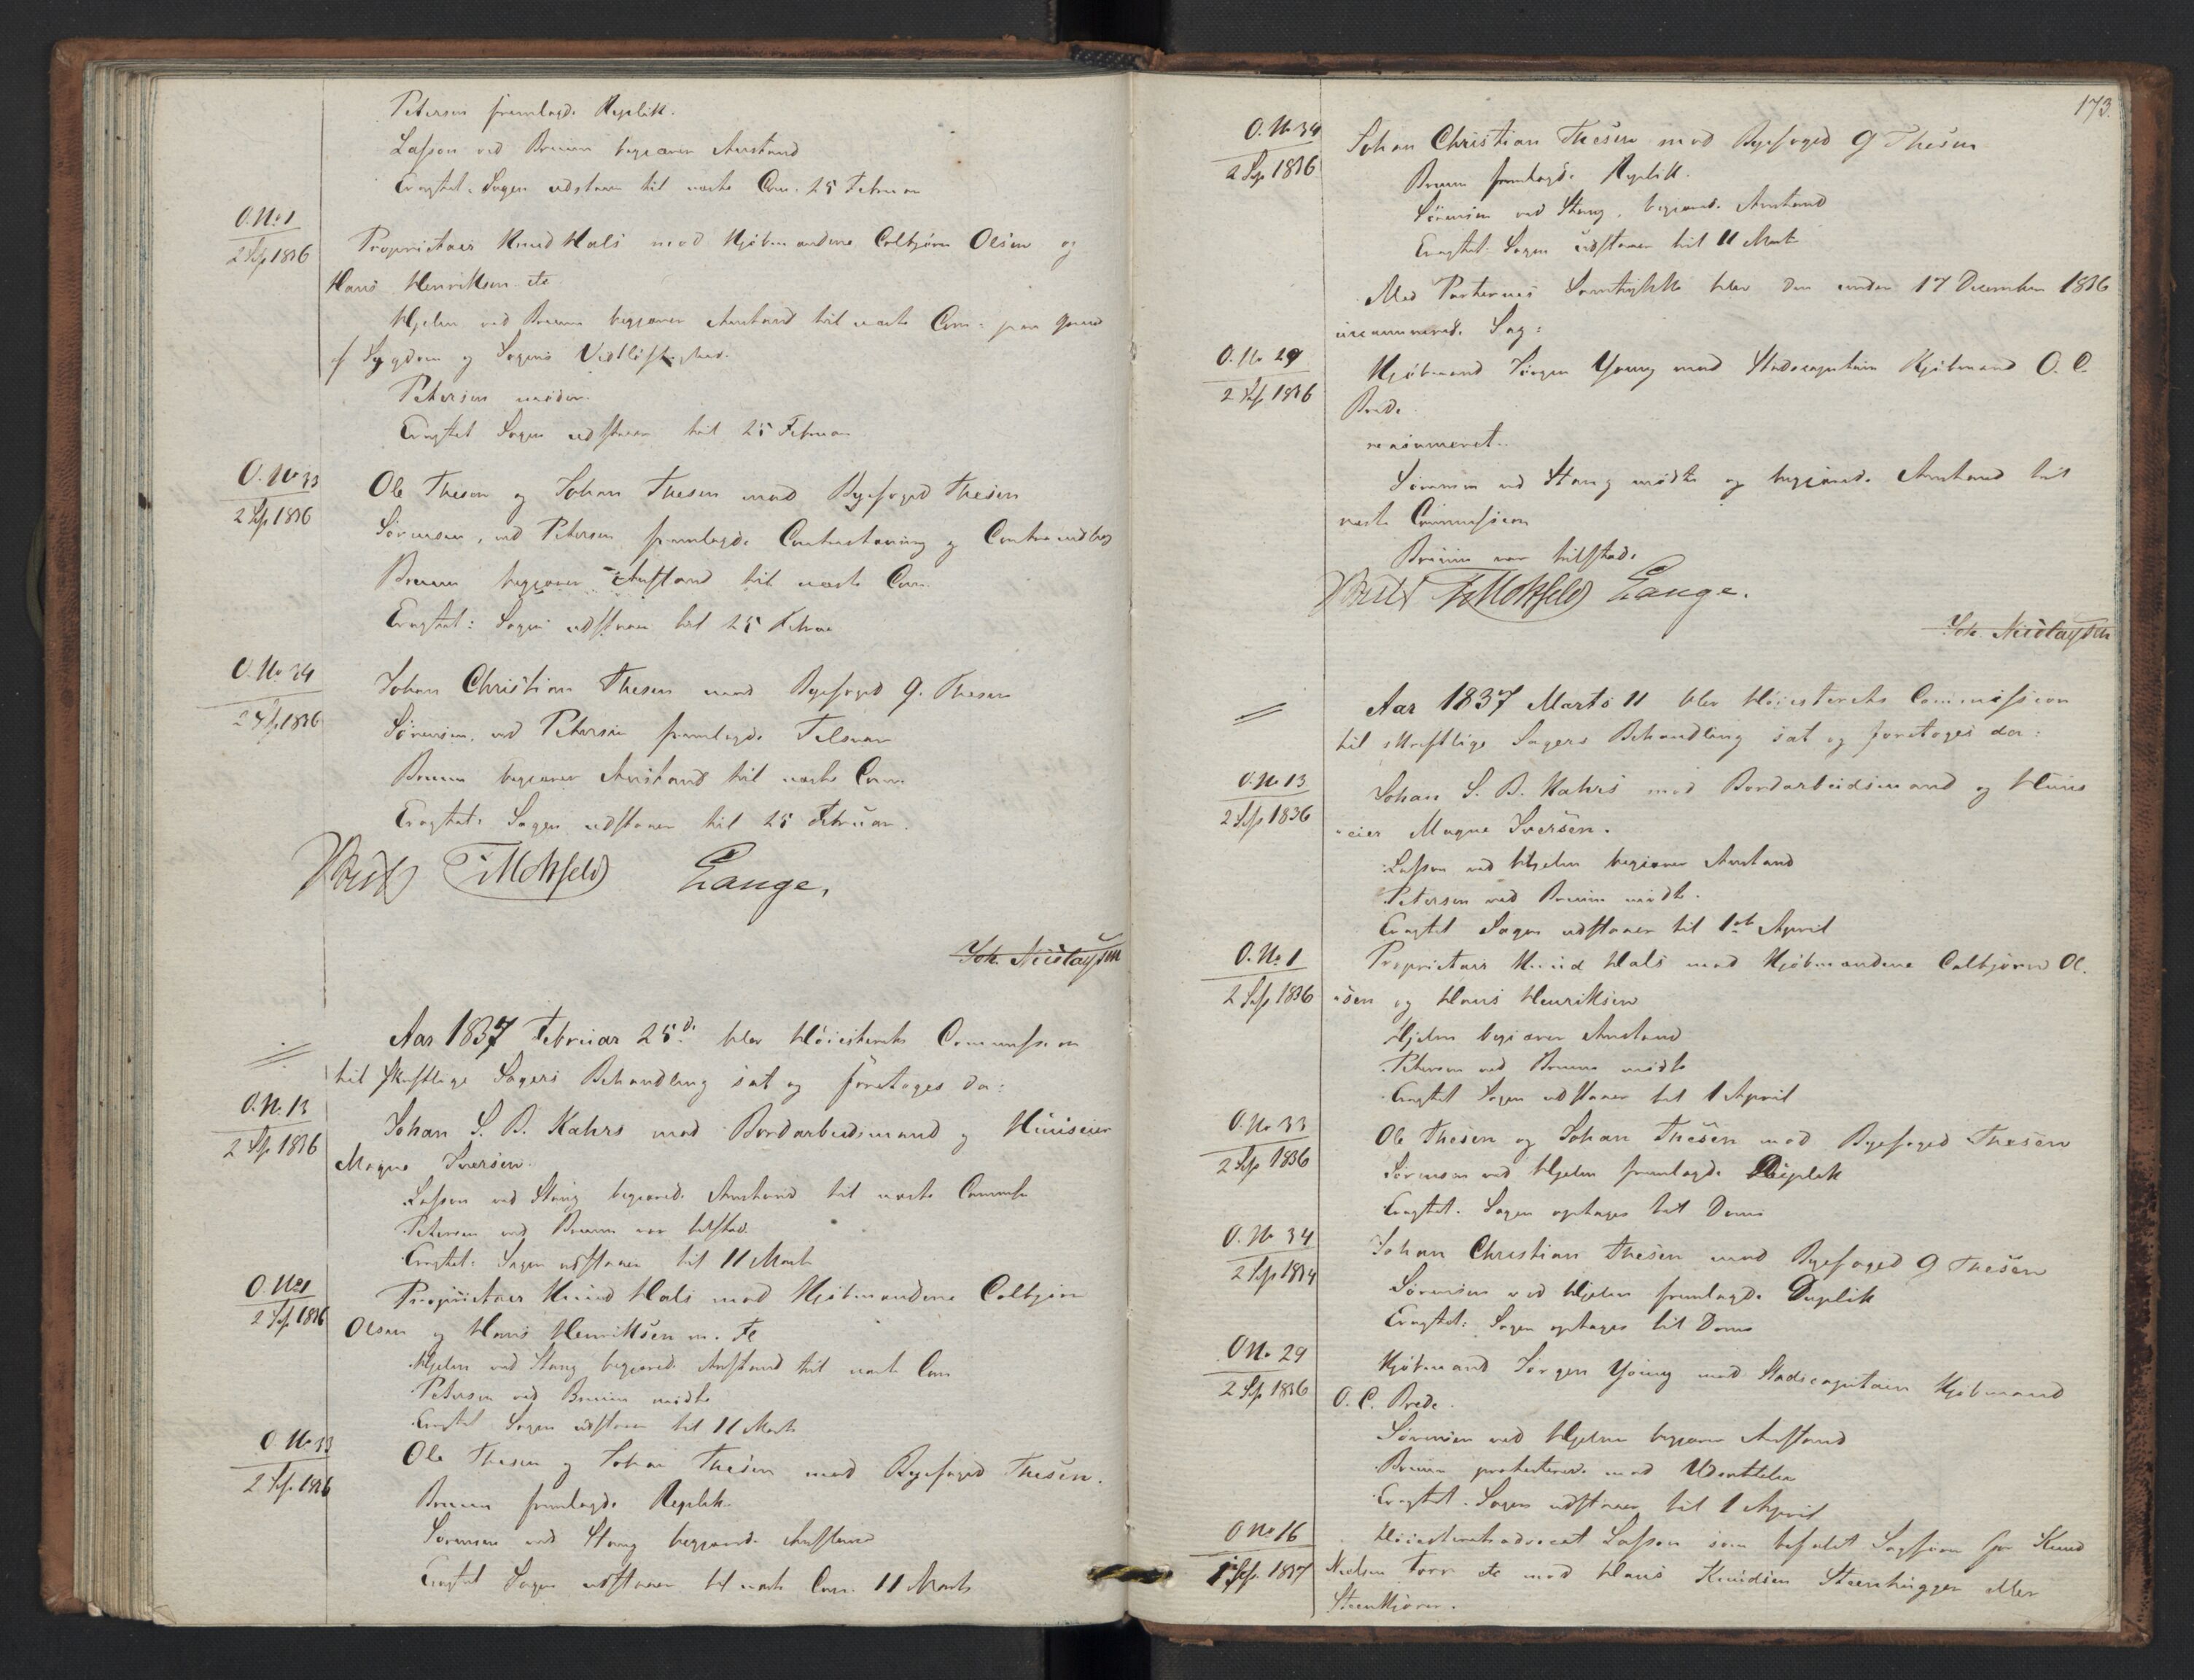 Petersen fremlagde Replik.
Lasson ved Bruun begjærer Anstand
Eragtet: Sagen udstaaer til næste Com. 25 Februar
O. No 1
2 Sess 1836
Proprietair Knud Hals mod Kjöbmændene Colbjörn Olsen og
Hans Henriksen etc
Hjelm ved Bruun begjærer Anstand til næste Com: paa Grund
af Sygdom og Sagens Vidtløftighed.
Petersen møder.
Eragtet Sagen udstaaer til 25 Februar
O. No 33
2 Sess 1836
Ole Thesen og Johan Thesen mod Byefoged Thesen
Sörensen, ved Petersen fremlagde Contrastævning og Contraindlæg
Bruun begjærer Anstand til næste Com.
Eragtet: Sagen udstaaer til 25 Februar
O. No 34
2 Sess 1836
Johan Christian Thesen mod Byefoged G. Thesen
Sörensen, ved Petersen fremlagde Tilsvar
Bruun begjærer Anstand til næste Com.
Eragtet: Sagen udstaaer til 25 Februar.
F. Motzfeldt Lange,
Joh. Nicolaysen
Aar 1837 Februar 25d. blev Høiesterets Commission
til skriftlige Sagers Behandling sat og foretoges da:
O. N. 13
2 Sess 1836
Johan S. B. Kahrs mod Bordarbeidsmand og Huuseier
Magne Iversen.
Lasson ved Stang begjærede Anstand til næste Commiss
Petersen ved Bruun var tilstede.
Eragtet: Sagen udstaaer til 11 Marts
O. No 1
2 Sess 1836
Proprietair Knud Hals mod Kjöbmændene Colbjörn
Olsen og Hans Henriksen m. Fl
Hjelm ved Stang begjærede Anstand til næste Com
Petersen ved Bruun mødte
Eragtet Sagen udstaaer til 11 Marts
O No 33
2 Sess 1836
Ole Thesen og Johan Thesen mod Byefoged Thesen.
Bruun fremlagde Replik
Sörensen ved Stang begjærede Anstand
Eragtet Sagen udstaaer til næste Com. 11 Marts
173.
O. No 34
2 Sess 1836
Johan Christian Thesen mod Byefoged G Thesen
Bruun fremlagde Replik.
Sörensen ved Stang, begjærede Anstand
Eragtet: Sagen udstaaer til 11 Marts
Med Parternes Samtykke blev den under 17 December 1836
incaminerede Sag:
O. No 29
2 Sess 1836
Kjöbmand Jörgen Young mod Stadscapitain Kjöbmand O. C.
Brede
reasumeret.
Sörensen ved Stang mødte og begjærede Anstand til
næste Commission
Bruun var tilstede.
F. Motzfeldt Lange.
Joh. Nicolaysen
Aar 1837 Marts 11 blev Høiesterets Commission
til skriftlige Sagers Behandling sat og foretoges da:
O. No 13
2 Sess 1836
Johan S. B. Kahrs mod Bordarbeidsmand og Huus
eier Magne Iversen.
Lasson ved Hjelm begjærer Anstand
Petersen ved Bruun mødte.
Eragtet Sagen udstaaer til 1ste April
O. No 1
2 Sess 1836
Proprietair Knud Hals mod Kjöbmændene Colbjörn Ol-
sen og Hans Henriksen
Hjelm begjærer Anstand
Petersen ved Bruun mødte
Eragtet Sagen udstaaer til 1 April
O. No 33
2 Sess 1836
Ole Thesen og Johan Thesen mod Byefoged Thesen
Sörensen ved Hjelm fremlagde Duplik
Eragtet. Sagen optages til Doms
O. No 34
2 Sess 1834
Johan Christian Thesen mod Byefoged G Thesen
Sörensen ved Hjelm fremlagde Duplik
Eragtet: Sagen optages til Doms
O No. 29
2 Sess 1836
Kjöbmand Jörgen Young mod Stadscapitain Kjöbmand
O. C. Brede.
Sörensen ved Hjelm begjærer Anstand
Bruun protesterede mod Udsættelse
Eragtet. Sagen udstaaer til 1 April
O No 16
1 Sess. 1837
Høiesteretsadvocat Lasson som befalet Sagfører for Knud
Nielsen Torr etc mod Hans Knudsen Steenhugger eller
Steenkjører.